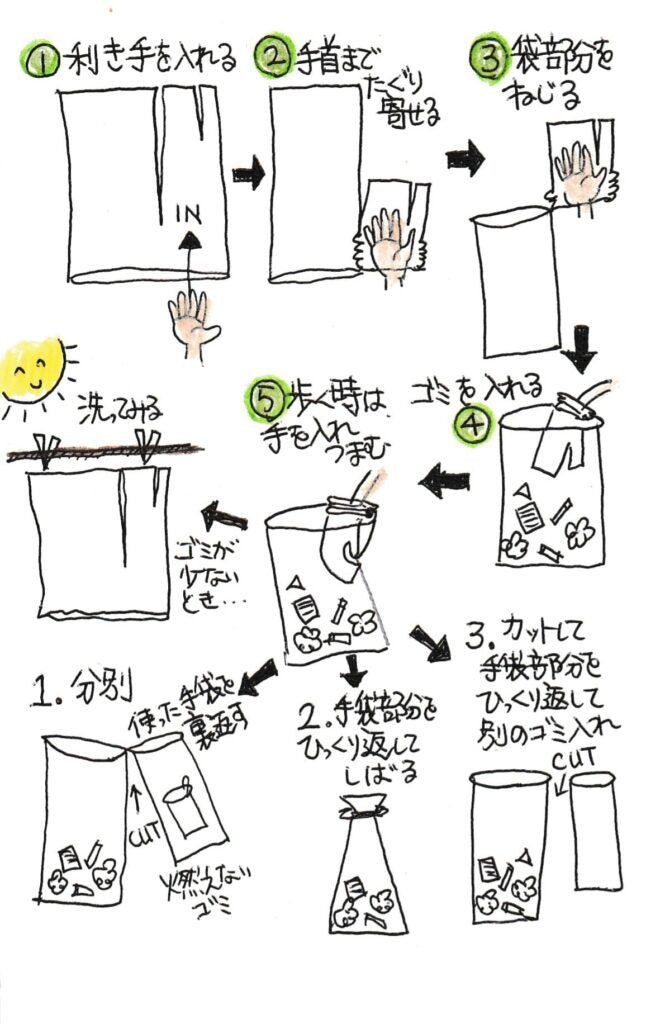 ① 利き手を入れる
② 手首まで
たぐり
寄せる
③ 袋部分を
ねじる
IN
ゴミを入れる
④
⑤ 歩く時は
手を入れ
つまむ
洗ってみる
ゴミが
少ない
とき...
1. 分別
使った手袋を
裏返す
CUT
燃えない
ゴミ
2. 手袋部分を
ひっくり返して
しばる
3. カットして
手袋部分を
ひっくり返して
別のゴミ入れ
CUT